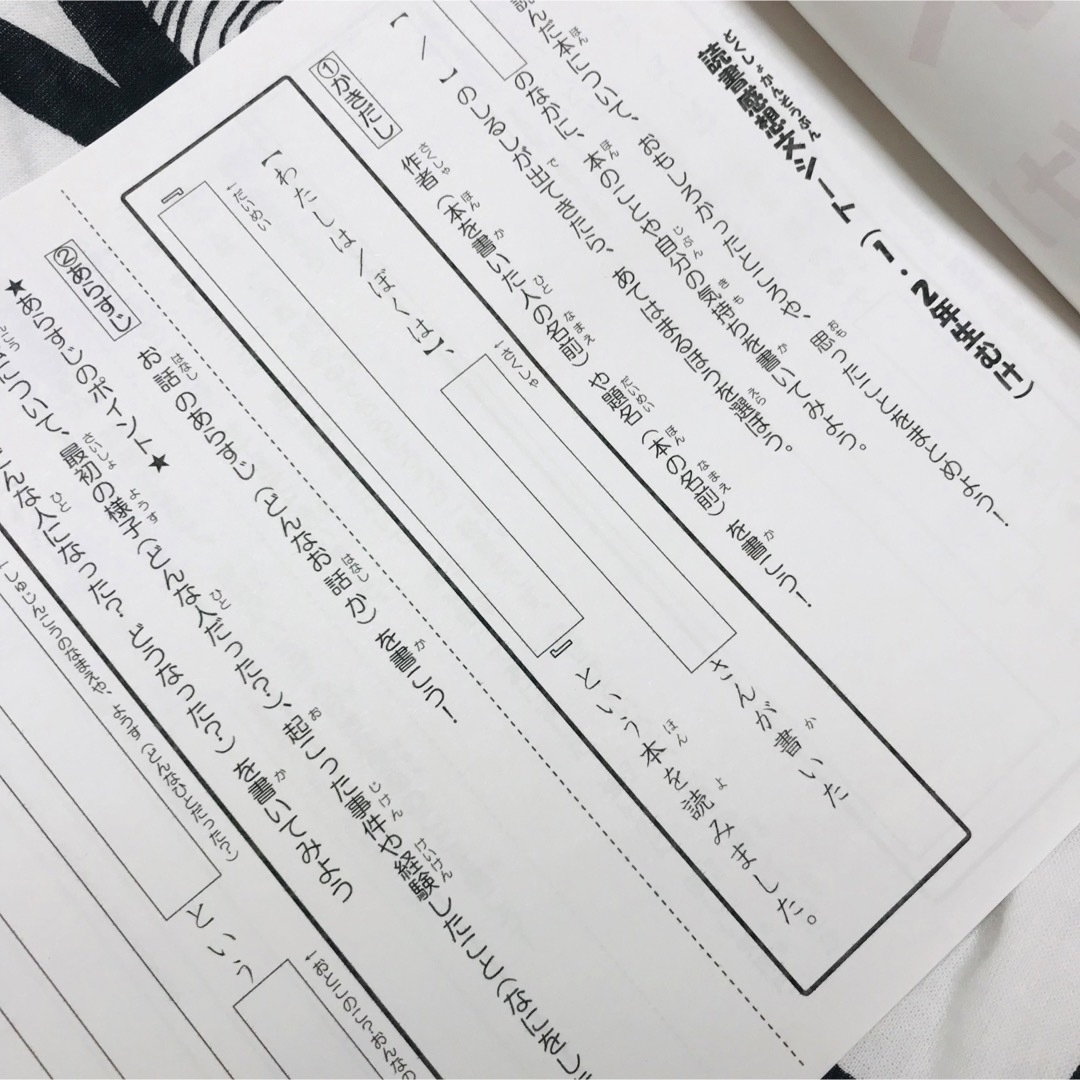 読書感想文シート（1．2年生むけ）
どくしょかんそうぶん
読んだ本について、おもしろかったところや、思ったことをまとめよう！
のなかに、本のことや自分の気持ちを書いてみよう。
【／】のしるしが出てきたら、あてはまるほうを選ぼう。
①かきだし
作者（本を書いた人の名前）や題名（本の名前）を書こう！
【わたしは／ぼくは】、
さくしゃ
さんが書いた
だいめい
『
』という本を読みました。
②あらすじ
お話のあらすじ（どんなお話か）を書こう！
★あらすじのポイント★
について、最初の様子（どんな人だった？）、起こった事件や経験したこと（なにをし
どんな人になった？どうなった？）を書いてみよう
しゅじんこうのなまえや、ようす（どんなひとだった？）
という
おとこのこ？おんなの